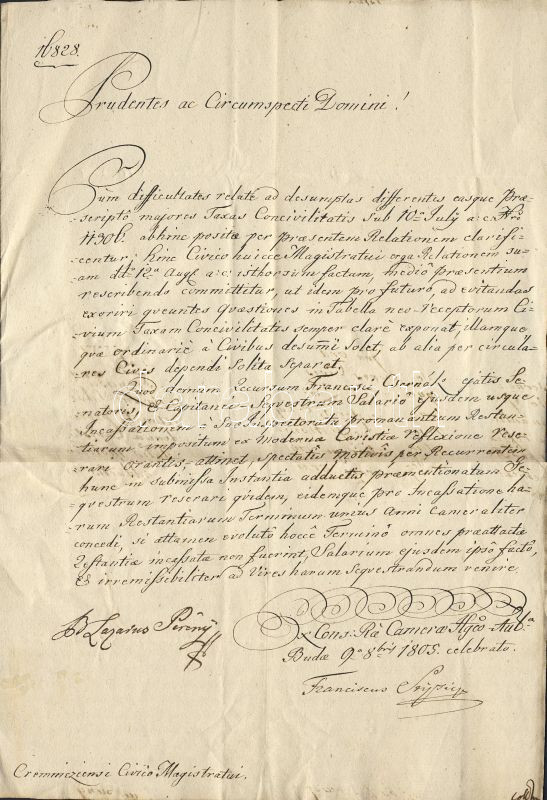 16828.
Prudentes ac Circumspecti Domini!
Cum difficultates relatè ad desumptas differentes easque Præ-
-scriptô majores Taxas Concivilitatis Sub 10â July a: c. Nrô
11306. abhinc positæ per præsentem Relationem clarifi-
-centur; hinc Civico huicce Magistratui erga Relationem su-
-am dtô 12a Augti a: c: isthorsum factam, mediô præsentium
rescribendo committitur, ut idem pro futuro, ad evitandas
exoriri queuntes Quæstiones in Tabella neo-receptorum Ci-
-vium Taxam Concivilitatis semper clarè exponat, illamque
quæ ordinariè à Civibus desumi solet, ab alia per circula-
-res Cives dependi solita Separet.
Quod demum Recursum Francisci Csernák ejatis Se-
-natoris, & Capitanei Sequestrum Salariô ejusdem usque
Incassationem Suæ Inspectoratu promanantium Restan-
-tiarum impositum ex Moderna Caristiæ reflexione rese-
-rari Orantis attinet, Spectatis Motivis per Recurrentem
hunc in submissa Instantia adductis præmentionatum Se-
-questrum reserari quidem, eidemque pro Incassatione ha-
-rum Restantiarum Terminum unius Anni Cameraliter
concedi, si attamen evoluto hocce Terminô omnes præattactæ
Restantiæ incassatæ non fuerint, Salarium ejusdem ipsô factô,
& irremissibiliter ad Vires harum Sequestrandum venire
B Lazarus Perény
Ex Cons: Ræ Cameræ Hgco-Aulca
Budæ 9a 8bris 1805. celebrato.
Franciscus
Cremniciensi Civico Magistratui.